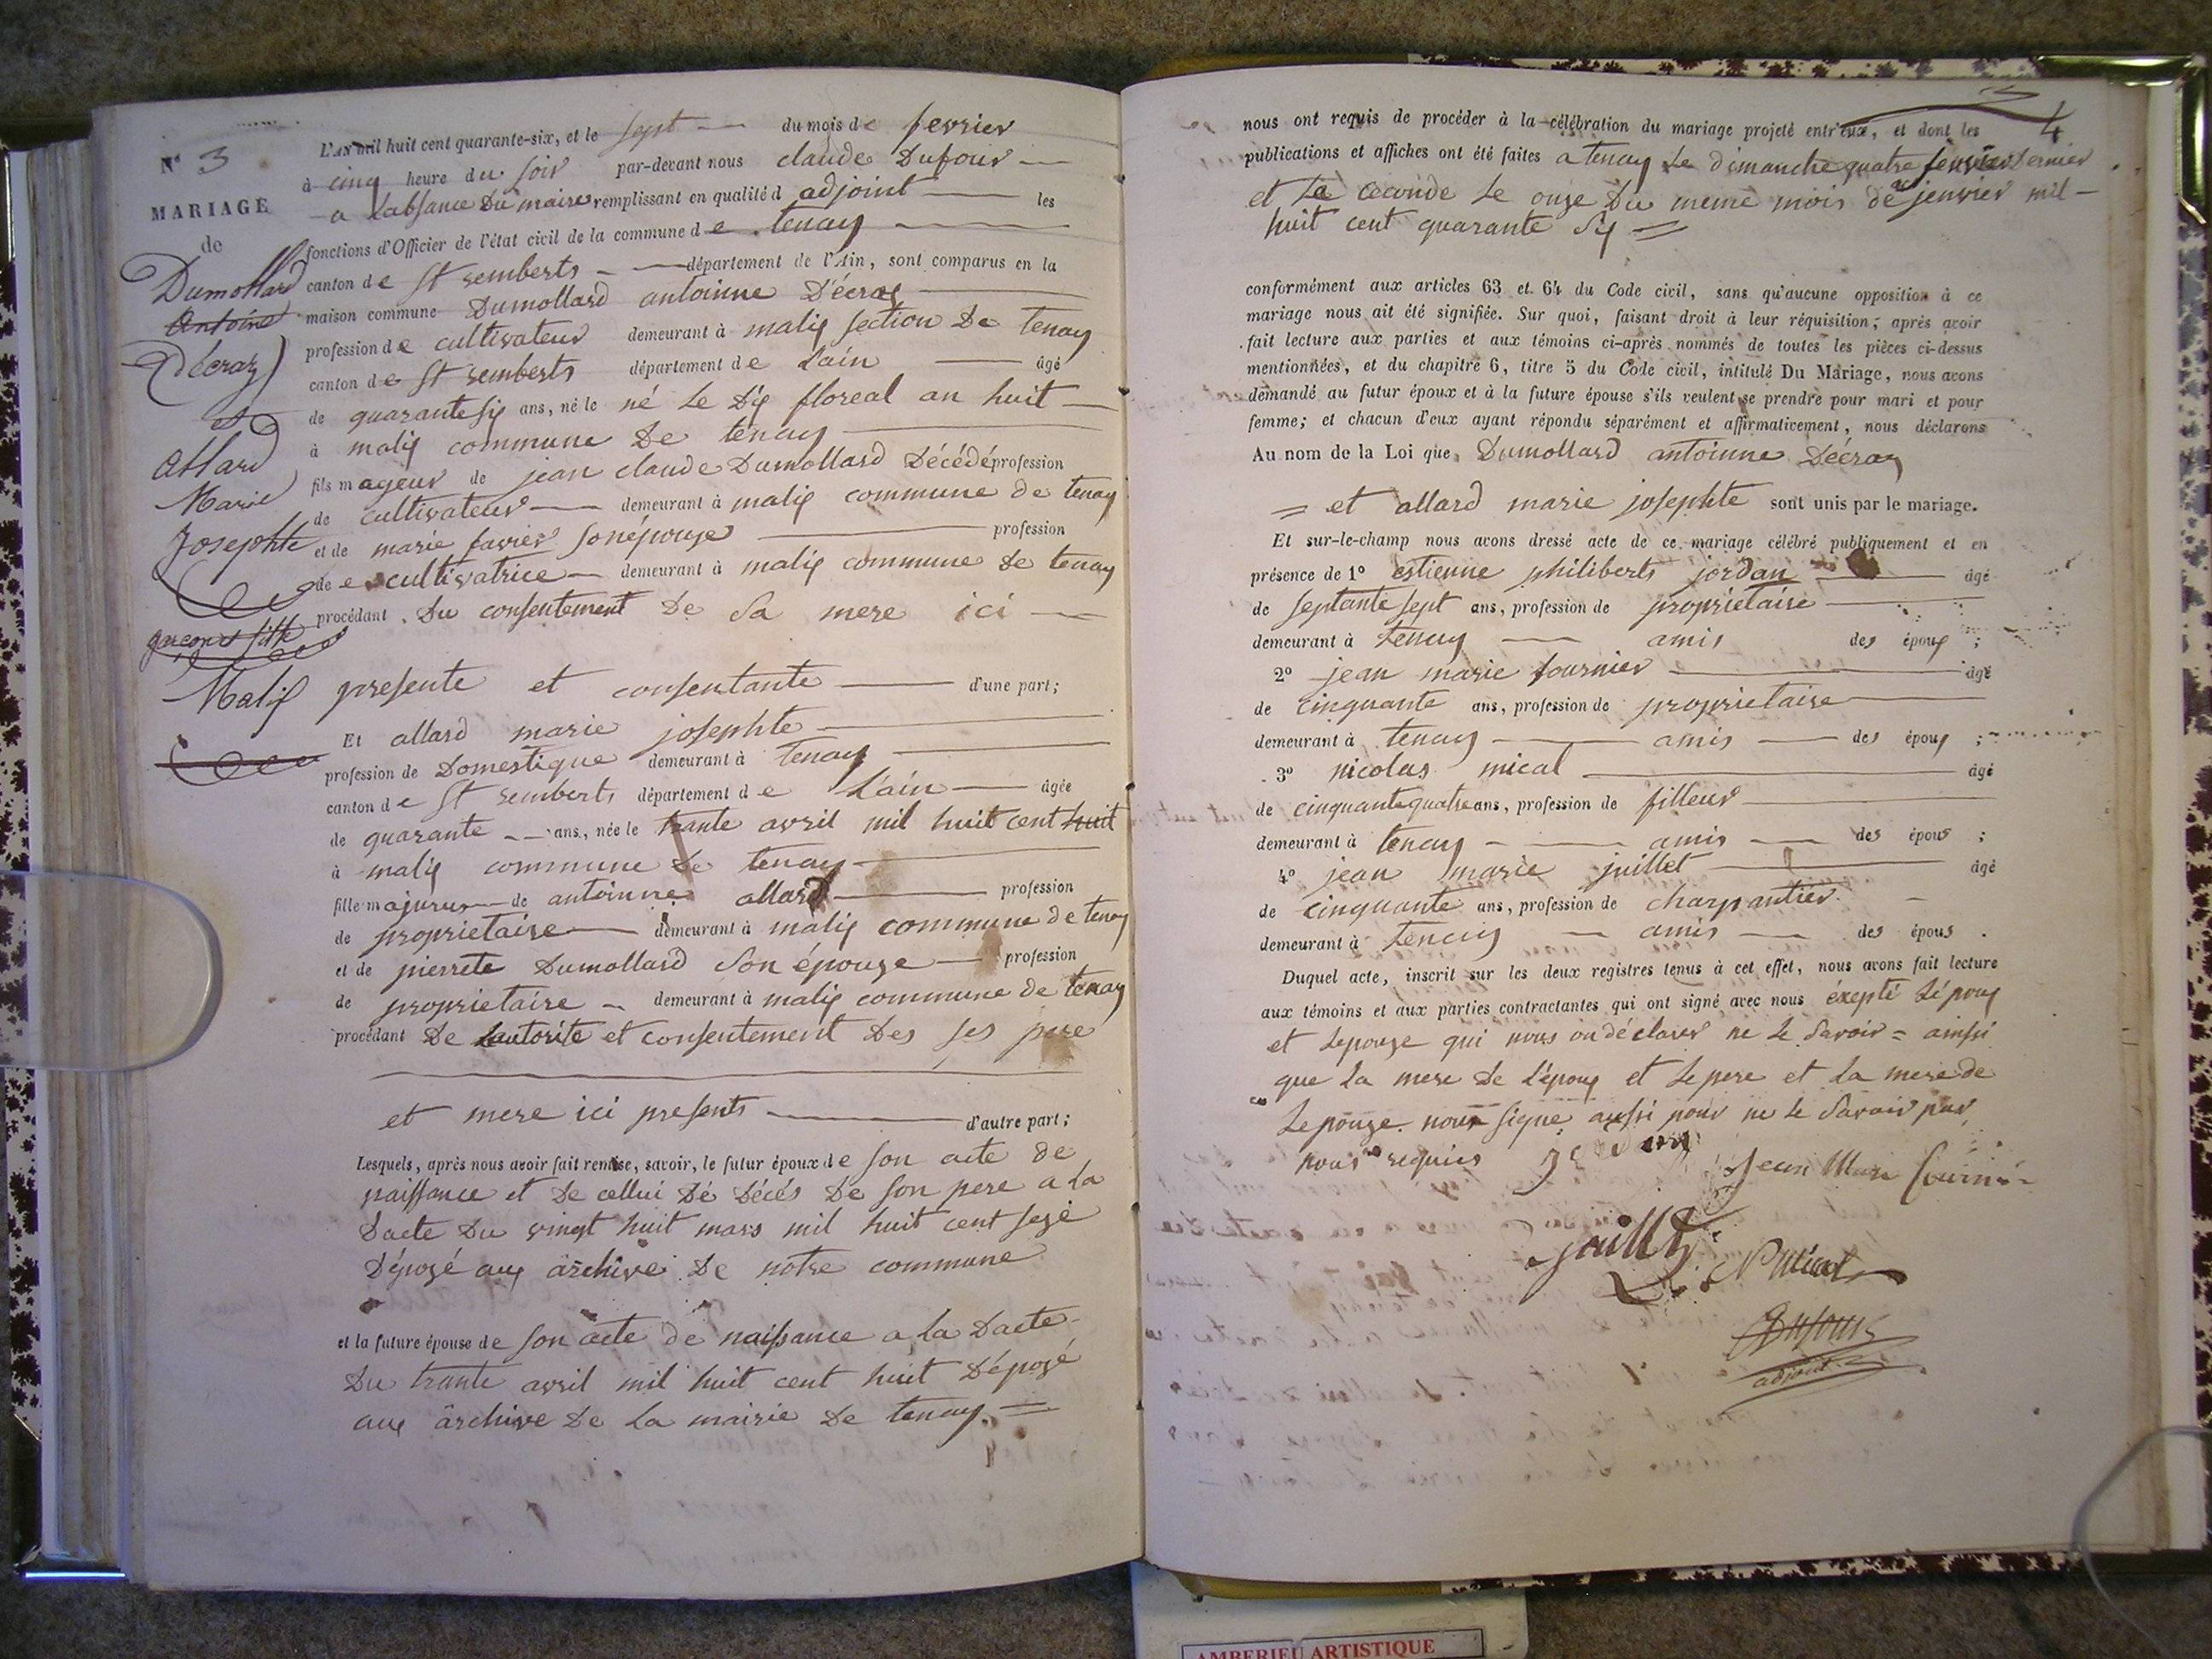 N° 3
MARIAGE
de
Dumollard
Antoine
(Décraz)
et
Allard
Marie
Josephte
garçon et fille
Malix
L'AN mil huit cent quarante-six, et le sept du mois de fevrier
à cinq heure du soir par-devant nous claude Dufour
a labsance Du maire remplissant en qualité d adjoint les
fonctions d'Officier de l'état civil de la commune de tenay
canton de St remberts département de l'Ain, sont comparus en la
maison commune Dumollard antoinne Décraz
profession de cultivateur demeurant à malix section De Tenay
canton de St remberts département de Lain âgé
de quarante six ans, né le né Le Dix floreal an huit
à malix commune De tenay
fils mageur de jean claude Dumollard Décédé profession
de cultivateur demeurant à malix commune de tenay
et de marie favier son épouze profession
de cultivatrice demeurant à malix commune De tenay
procédant Du consentement De Sa mere ici
presente et consentante d'une part;
Et allard marie josephte
profession de Domestique demeurant à Tenay
canton de St remberts département de Lain âgée
de quarante ans, née le trante avril mil huit cent huit
à malix commune De tenay
fille majeure de antoinne allard profession
de proprietaire demeurant à malix commune de tenay
et de pierrete Dumollard Son épouze profession
de proprietaire demeurant à malix commune de tenay
procédant De Lautorite et consentement Des ses pere
et mere ici presents d'autre part;
Lesquels, après nous avoir fait remise, savoir, le futur époux de son acte de
naissance et De cellui De Décés De son pere a La
Dacte Du vingt huit mars mil huit cent seze
Dépozé aux archive De notre commune
et la future épouse de son acte de naissance a La Dacte
Du trante avril mil huit cent huit Dépozé
aux archive De La mairie De tenay
4
nous ont requis de procéder à la célébration du mariage projeté entr'eux, et dont les
publications et affiches ont été faites a tenay Le dimanche quatre fevrier Dernier
et La ceconde Le onze Du meme mois de jenvier mil
huit cent quarante Six
conformément aux articles 63 et 64 du Code civil, sans qu'aucune opposition à ce
mariage nous ait été signifiée. Sur quoi, faisant droit à leur réquisition; après avoir
fait lecture aux parties et aux témoins ci-après nommés de toutes les pièces ci-dessus
mentionnées, et du chapitre 6, titre 5 du Code civil, intitulé Du Mariage, nous avons
demandé au futur époux et à la future épouse s'ils veulent se prendre pour mari et pour
femme; et chacun d'eux ayant répondu séparément et affirmativement, nous déclarons
Au nom de la Loi que Dumollard antoinne Décraz
et allard marie josephte sont unis par le mariage.
Et sur-le-champ nous avons dressé acte de ce mariage célébré publiquement et en
présence de 1° estienne philiberts jordan âgé
de septante sept ans, profession de proprietaise
demeurant à tenay amis des époux ;
2° jean marie fournier âgé
de cinquante ans, profession de proprietaise
demeurant à tenay amis des époux ;
3° nicolas mical âgé
de cinquante quatre ans, profession de filleur
demeurant à tenay amis des époux ;
4° jean marie juillet âgé
de cinquante ans, profession de charpantier
demeurant à tenay amis des époux .
Duquel acte, inscrit sur les deux registres tenus à cet effet, nous avons fait lecture
aux témoins et aux parties contractantes qui ont signé avec nous éxepté Lépoux
et Lepouze qui nous on déclarer ne Le Savoir = ainssi
que La mere De L'époux et Le pere et La mere de
Lepouze. nour signe aussi pour ne Le Savoir par
nous requies
Jean Marie fournier
juillet
N Mical
Dufour
adjoint
AMBERIEU ARTISTIQUE